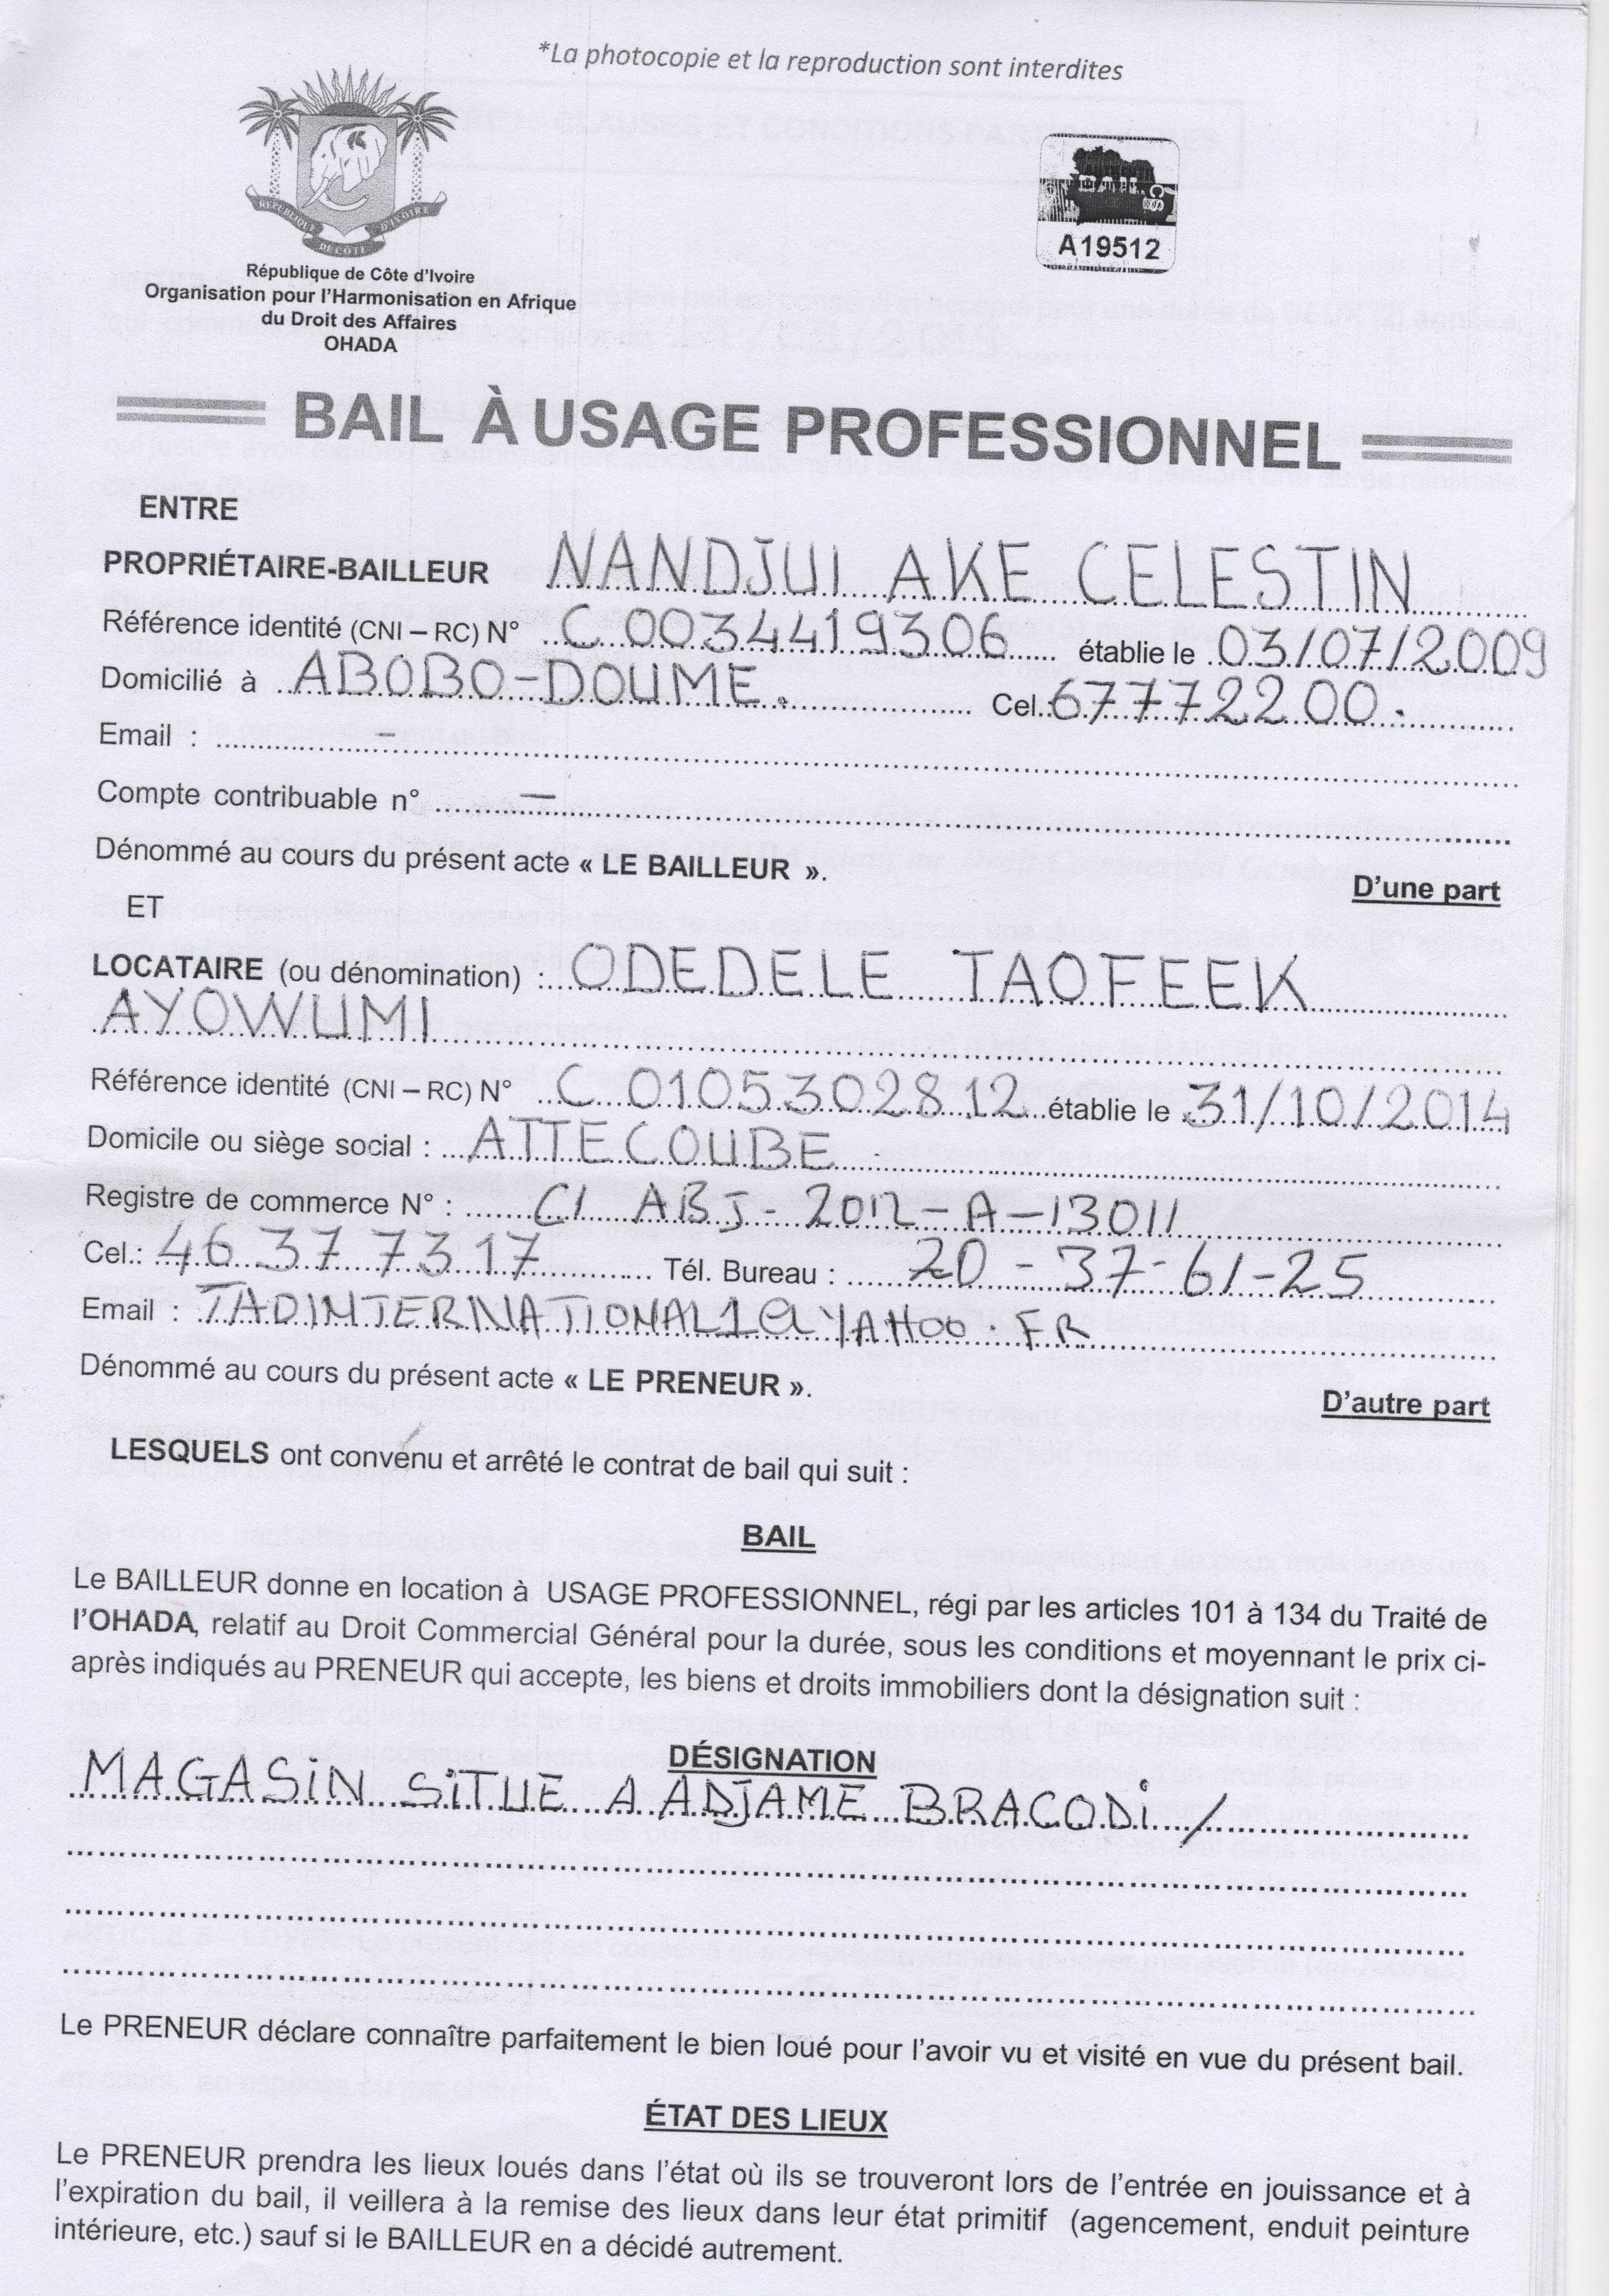 *La photocopie et la reproduction sont interdites
REPUBLIQUE DE CÔTE D'IVOIRE
A19512
République de Côte d'Ivoire
Organisation pour l'Harmonisation en Afrique
du Droit des Affaires
OHADA
BAIL À USAGE PROFESSIONNEL
ENTRE
PROPRIÉTAIRE-BAILLEUR NANDJUI AKE CELESTIN
Référence identité (CNI – RC) N° C 0034419306 établie le 03/07/2009
Domicilié à ABOBO-DOUME. Cel.: 67772200.
Email : –
Compte contribuable n° –
Dénommé au cours du présent acte « LE BAILLEUR ».
D'une part
ET
LOCATAIRE (ou dénomination) : ODEDELE TAOFEEK
AYOWUMI
Référence identité (CNI – RC) N° C 0105302812 établie le 31/10/2014
Domicile ou siège social : ATTECOUBE
Registre de commerce N° : CI ABJ - 2012 - A - 13011
Cel.: 46 37 73 17 Tél. Bureau : 20 - 37 - 61 - 25
Email : TADINTERNATIONAL1@YAHOO.FR
Dénommé au cours du présent acte « LE PRENEUR ».
D'autre part
LESQUELS ont convenu et arrêté le contrat de bail qui suit :
BAIL
Le BAILLEUR donne en location à USAGE PROFESSIONNEL, régi par les articles 101 à 134 du Traité de
l'OHADA, relatif au Droit Commercial Général pour la durée, sous les conditions et moyennant le prix ci-
après indiqués au PRENEUR qui accepte, les biens et droits immobiliers dont la désignation suit :
DÉSIGNATION
MAGASIN SITUE A ADJAME BRACODI /
Le PRENEUR déclare connaître parfaitement le bien loué pour l'avoir vu et visité en vue du présent bail.
ÉTAT DES LIEUX
Le PRENEUR prendra les lieux loués dans l'état où ils se trouveront lors de l'entrée en jouissance et à
l'expiration du bail, il veillera à la remise des lieux dans leur état primitif (agencement, enduit peinture
intérieure, etc.) sauf si le BAILLEUR en a décidé autrement.